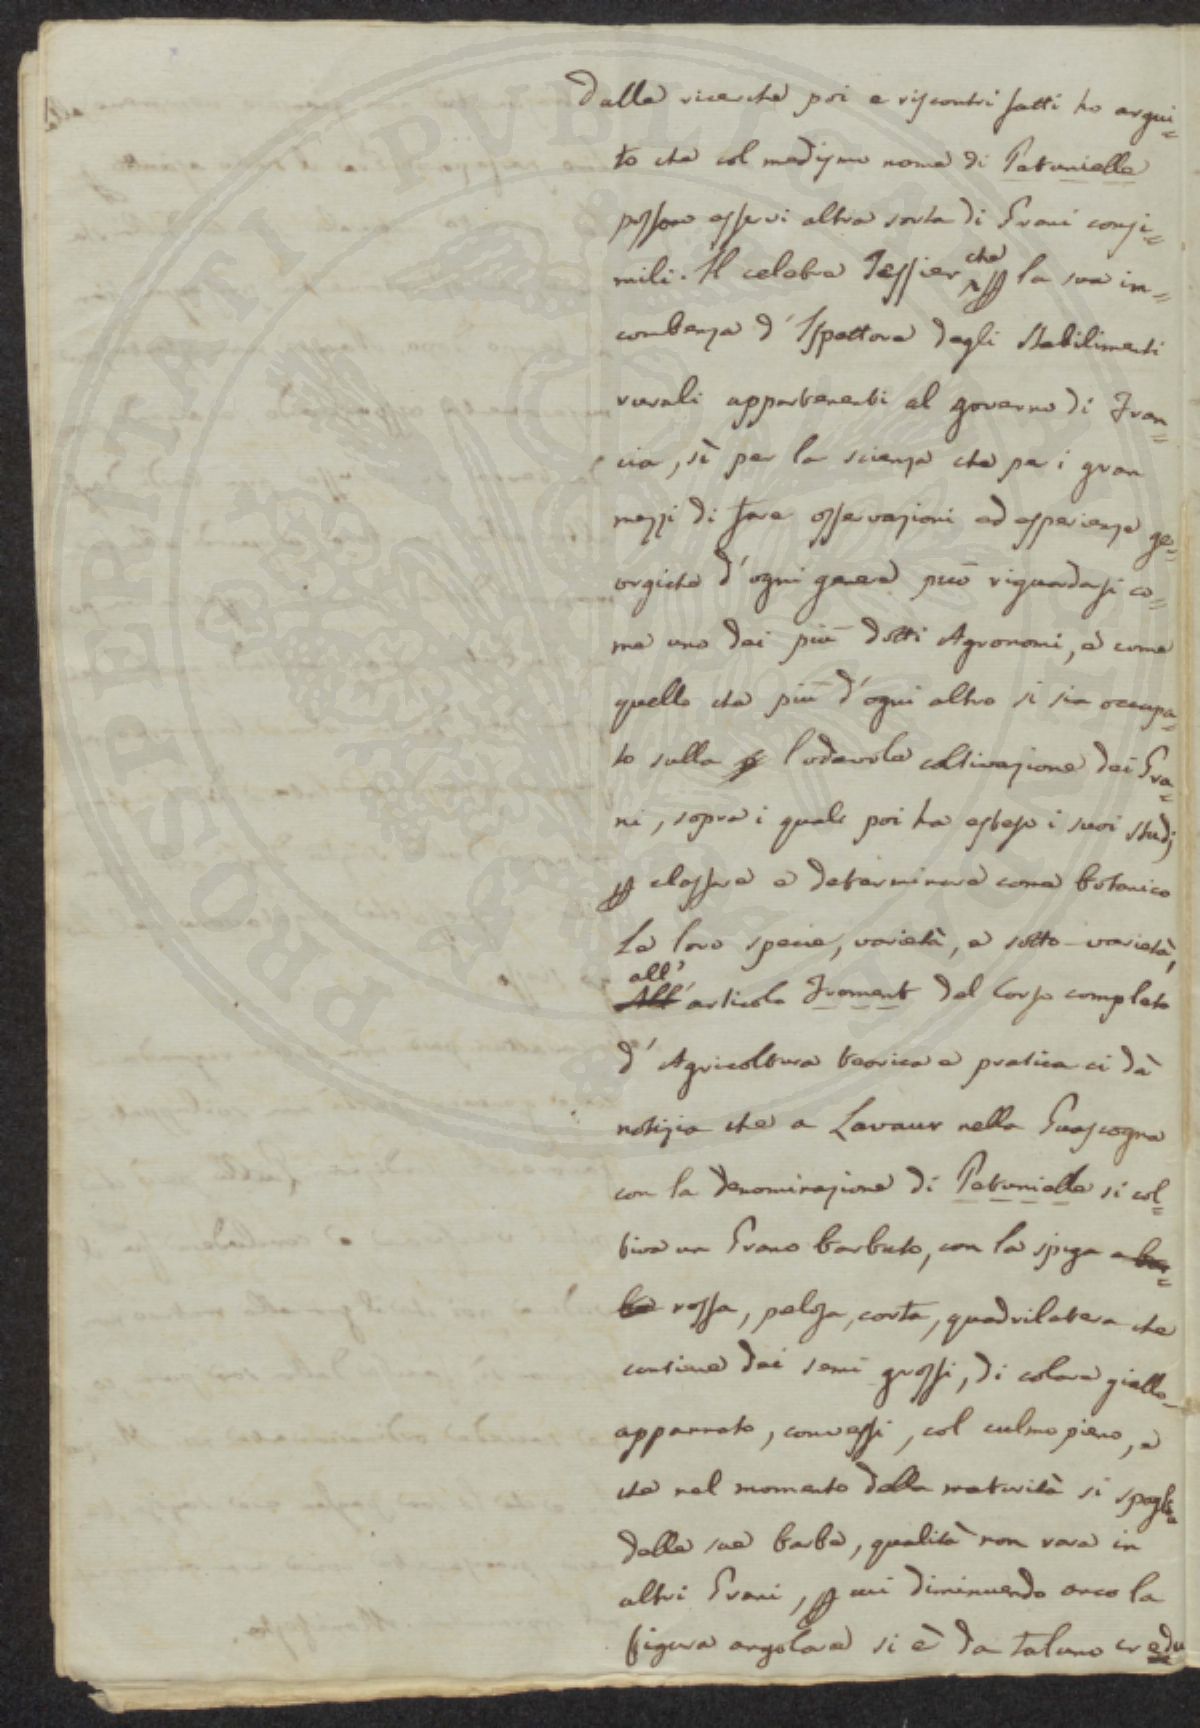 Dalle ricerche poi e riscontri fatti ho argui=
to che col medesimo nome di Petunielle
possono esservi altre sorta di Grani consi=
mili. Il celebre Tessier che per la sua in=
combenza d'Ispettore degli Stabilimenti
rurali appartenenti al governo di Fran=
cia, sì per la scienza che per i gran
mezzi di fare osservazioni ed esperienze ge=
orgiche d'ogni genere può riguardarsi co=
me uno dei più dotti Agronomi, e come
quello che più d'ogni altro si sia occupa=
to sulla lodevole coltivazione dei Gra=
ni, sopra i quali poi ha esteso i suoi studj
per classare e determinare come botanico
Le loro specie, varietà, e sotto-varietà,
all'
All' articolo Froment del Corso completo
d'Agricoltura teorica e pratica ci dà
notizia che a Lavaur nella Guascogna
con la denominazione di Petunielle si col=
tiva un Grano barbuto, con la spiga e bar=
be rossa, pelosa, corta, quadrilatera che
contiene dei semi grossi, di colore giallo-
appannato, convessi, col culmo pieno, e
che nel momento della maturità si spoglia
delle sue barbe, qualità non rara in
altri Grani, per cui diminuendo anco la
figura angolare si è da taluno credu